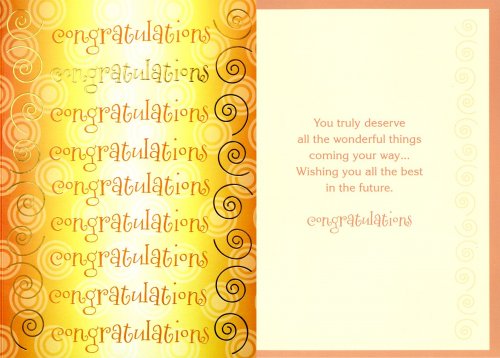 congratulations
congratulations
congratulations
congratulations
congratulations
congratulations
congratulations
congratulations
congratulations
You truly deserve
all the wonderful things
coming your way...
Wishing you all the best
in the future.
congratulations